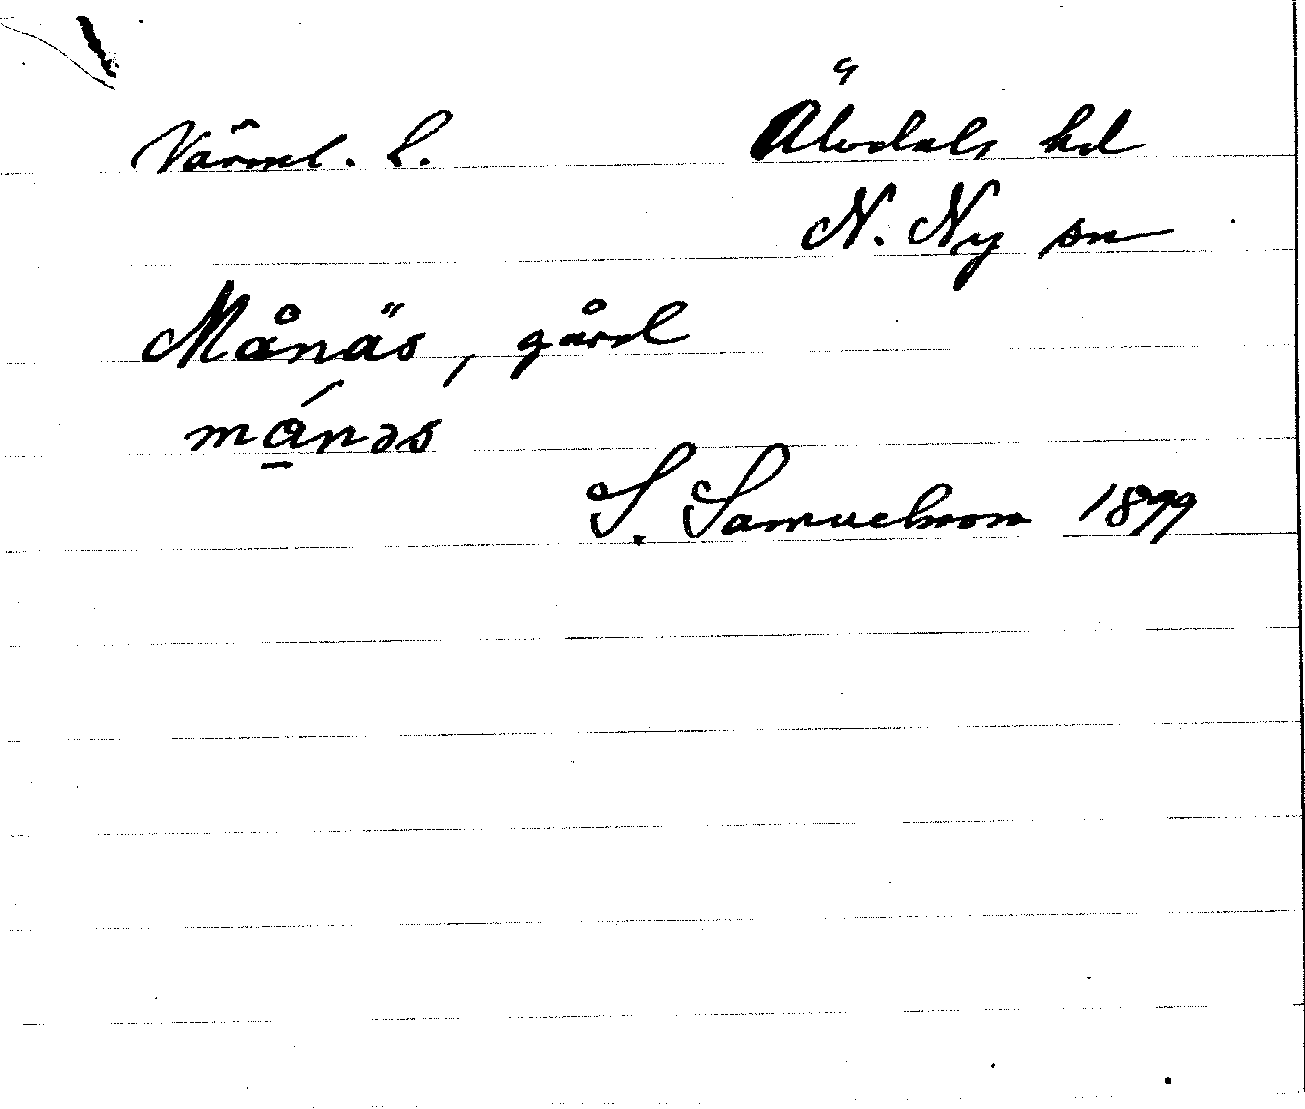 Värml. l. Älvdals hd
N. Ny sn
Månäs, gård
mǻ̱nəs
S. Samuelsson 1899